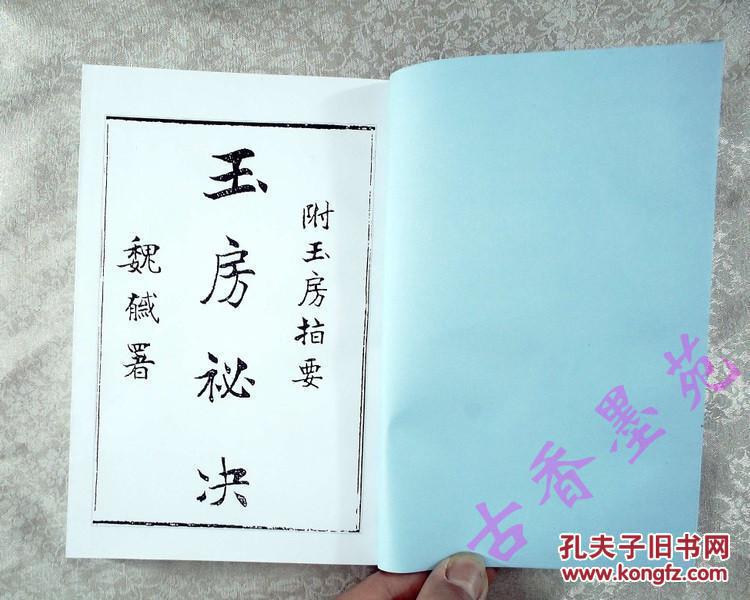 附玉房指要
玉房祕决
魏馘署
古香墨苑
孔夫子旧书网
www.kongfz.com